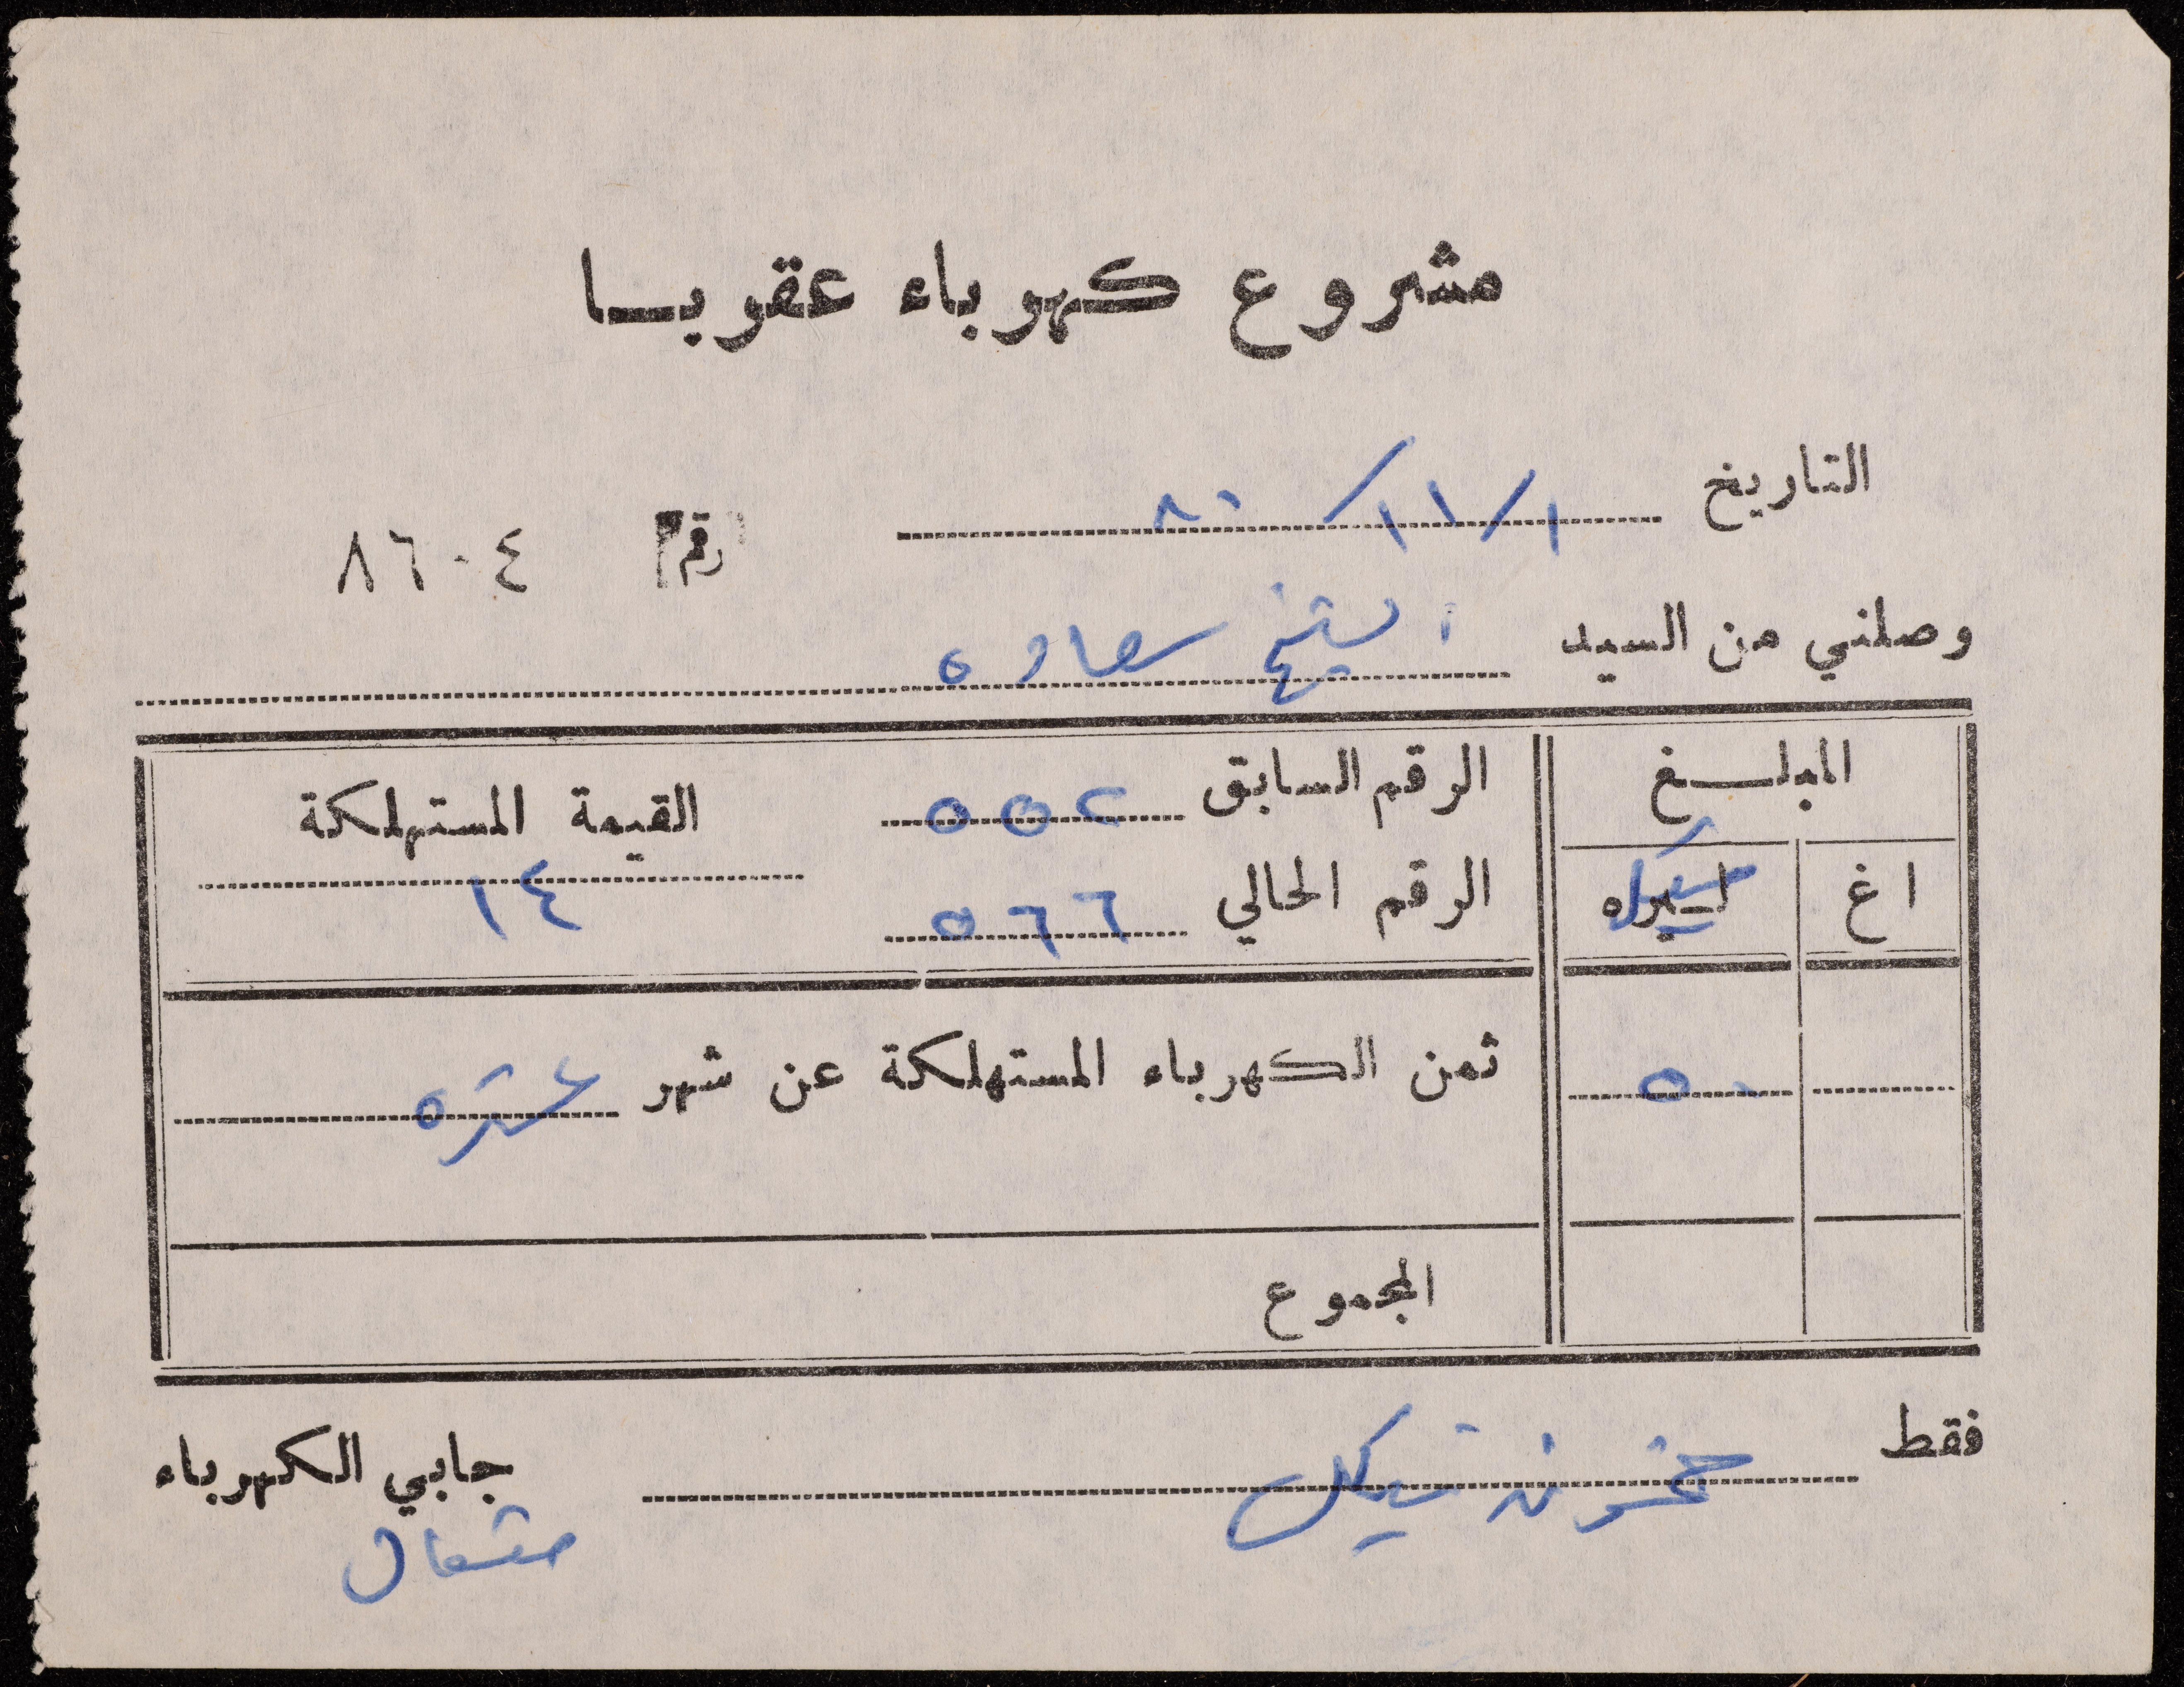 مشروع كهرباء عقربا
التاريخ ١/١١/٨٠
رقم ٨٦٠٤
وصلني من السيد الشيخ سعاده
المبلغ
الرقم السابق ٥٥٢
القيمة المستهلكة
اغ
ليره شيكل
الرقم الحالي ٥٦٦
١٤
٥٠
ثمن الكهرباء المستهلكة عن شهر عشره
المجموع
فقط خمسون شيكل
جابي الكهرباء